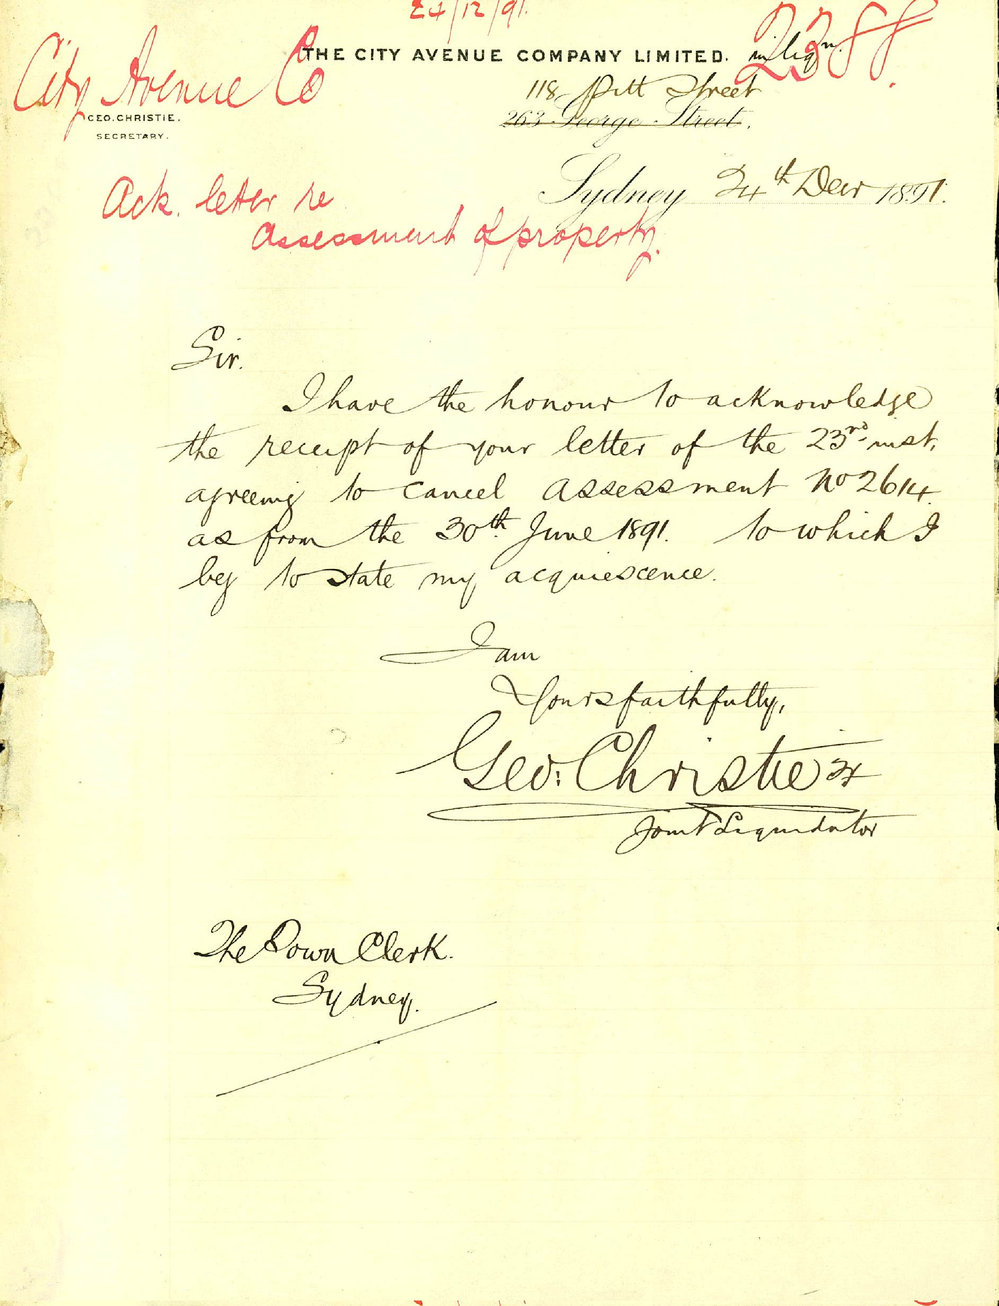 24/12/91.
2388.
City Avenue Co
THE CITY AVENUE COMPANY LIMITED. in liqn.
118 Pitt Street
263 George Street.
GEO. CHRISTIE.
SECRETARY.
Sydney 24th Decr 1891.
Ack. letter re
assessment of property.
Sir.
I have the honour to acknowledge
the receipt of your letter of the 23rd inst,
agreeing to cancel assessment No 2614
as from the 30th June 1891. to which I
beg to state my acquiescence.
I am
Yours faithfully,
Geo: Christie
Joint Liquidator
The Town Clerk.
Sydney.